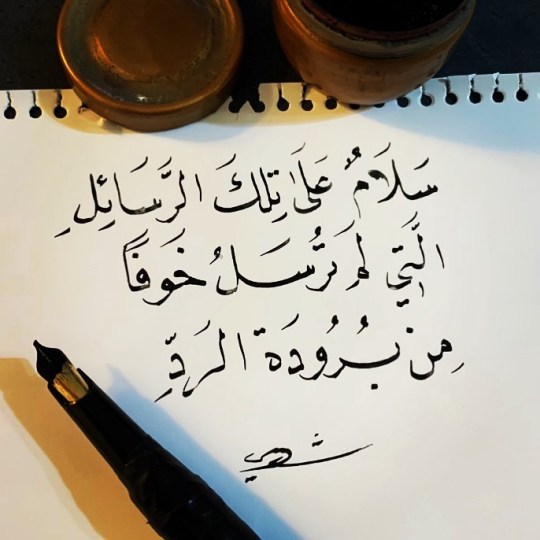 سَلَامٌ عَلَىٰ تِلكَ الرَّسَائِلِ
الَّتِي لَم تُرسَلُ خَوفًا
مِن بُرُودَة الرَدِّ